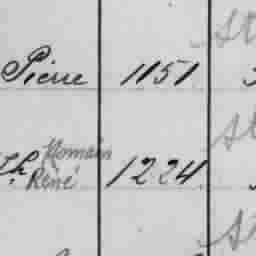 Pierre 1151 St
Th. Romain René 1224. St
St